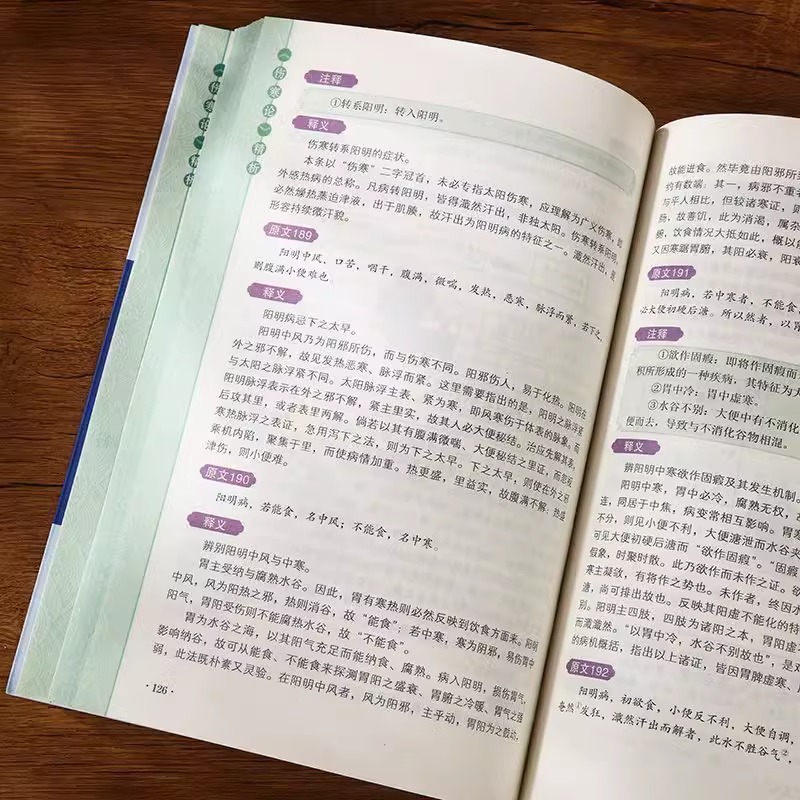 《伤寒论》精析
《伤寒论》精析
注释
①转系阳明：转入阳明。
释义
伤寒转系阳明的症状。
本条以“伤寒”二字冠首，未必专指太阳伤寒，应理解为广义伤寒，即
外感热病的总称。凡病转阳明，皆得濈然汗出，非独太阳。伤寒转系阳明，
必然燥热蒸迫津液，出于肌腠，故汗出为阳明病的特征之一。濈然汗出，是
形容持续微汗貌。
原文189
阳明中风，口苦，咽干，腹满，微喘，发热，恶寒，脉浮而紧，若下之，
则腹满小便难也。
释义
阳明病忌下之太早。
阳明中风乃为阳邪所伤，而与伤寒不同。阳邪伤人，易于化热。阳明在
外之邪不解，故见发热恶寒、脉浮而紧。这里需要指出的是，阳明之脉浮紧
与太阳之脉浮紧不同。太阳脉浮主表、紧为寒，即风寒伤于体表的脉象。而
阳明脉浮表示在外之邪不解，紧主里实，故其人必大便秘结。治应先解其表，
后攻其里，或者表里两解。倘若以其有腹满微喘、大便秘结之里证，而忽视
寒热脉浮之表证，急用泻下之法，则为下之太早。下之太早，则使在外之邪
乘机内陷，聚集于里，而使病情加重。热更盛，里益实，故腹满不解；热盛
津伤，则小便难。
原文190
阳明病，若能食，名中风；不能食，名中寒。
释义
辨别阳明中风与中寒。
胃主受纳与腐熟水谷。因此，胃有寒热则必然反映到饮食方面来。阳明
中风，风为阳热之邪，热则消谷，故“能食”；若中寒，寒为阴邪，易伤胃中
阳气，胃阳受伤则不能腐熟水谷，故“不能食”。
胃为水谷之海，以其阳气充足而能纳食、腐熟。病入阳明，损伤胃气，
影响纳谷，故可从能食、不能食来探测胃阳之盛衰、胃腑之冷暖、胃气之强
弱，此法既朴素又灵验。在阳明中风者，风为阳邪，主乎动，胃阳为之鼓动，
·126·
故能进食。然毕竟由阳邪所
约有数端：其一，病邪不重
与平人相比，但较诸寒证，则
肠，故善饥，此为消渴，属杂
何，饮食情况大抵如此，概以
又因寒踞胃腑，其阳必衰，阳衰
原文191
阳明病，若中寒者，不能食，
必大便初硬后溏。所以然者，以胃
注释
①欲作固瘕：即将作固瘕而
积所形成的一种疾病，其特征为大
②胃中冷：胃中虚寒。
③水谷不别：大便中有不消化
便而去，导致与不消化谷物相混。
释义
辨阳明中寒欲作固瘕及其发生机制。
阳明中寒，胃中必冷，腐熟无权，
连，同居于中焦，病变常相互影响。胃寒
不分，则见小便不利，大便溏泄而水谷夹
可见大便初硬后溏而“欲作固瘕”。“固瘕
假象，时聚时散。此乃欲作而未作之证。欲
寒主凝敛，有将作之势也。未作者，终因水
溏，尚可排出故也。反映其阳虚不能化的特
别。阳明主四肢，四肢为诸阳之本，胃阳虚不
而濈濈然。“以胃中冷，水谷不别故也”，是对
的病机概括，指出以上诸证，皆因胃脾虚寒、
原文192
阳明病，初欲食，小便反不利，大便自调，
奄然①发狂，濈然汗出而解者，此水不胜谷气②，